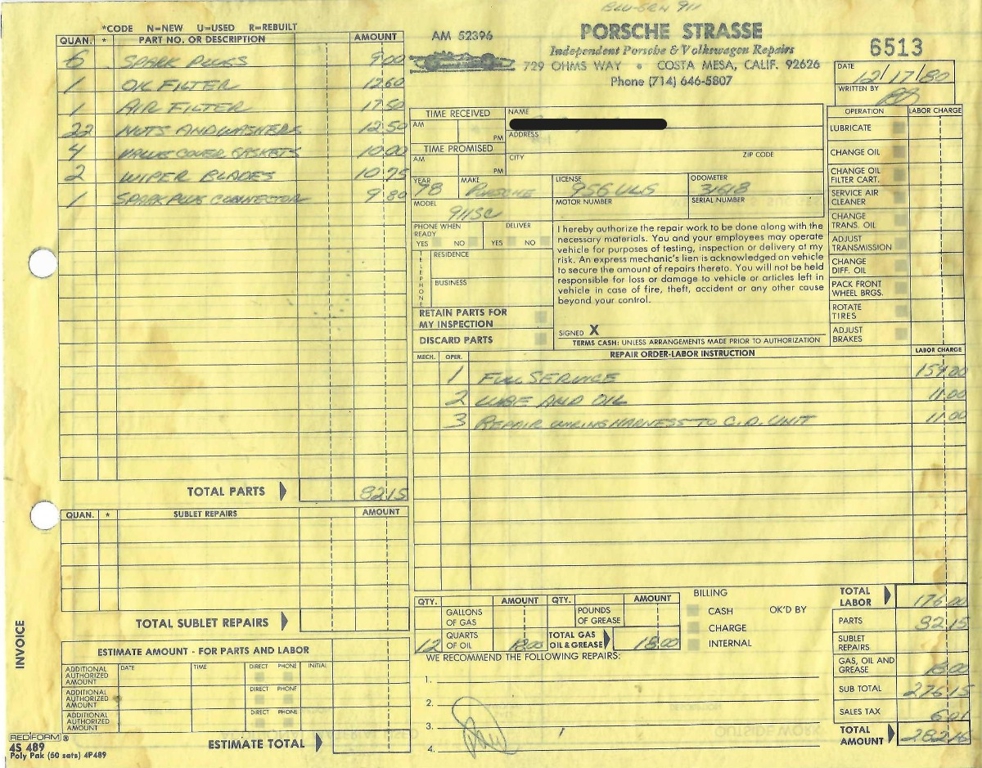 BLU-GRN 911
*CODE N=NEW U=USED R=REBUILT
QUAN. * PART NO. OR DESCRIPTION AMOUNT
6 SPARK PLUGS 9.00
1 OIL FILTER 12.60
1 AIR FILTER 17.50
22 NUTS AND WASHERS 12.50
4 VALVE COVER GASKETS 10.00
2 WIPER BLADES 10.75
1 SPARK PLUG CONNECTOR 9.80
TOTAL PARTS 82.15
QUAN. * SUBLET REPAIRS AMOUNT
TOTAL SUBLET REPAIRS
INVOICE
ESTIMATE AMOUNT - FOR PARTS AND LABOR
ADDITIONAL AUTHORIZED AMOUNT DATE TIME DIRECT PHONE INITIAL
ADDITIONAL AUTHORIZED AMOUNT DIRECT PHONE
ADDITIONAL AUTHORIZED AMOUNT DIRECT PHONE
REDIFORM®
4S 489
Poly Pak (50 sets) 4P489
ESTIMATE TOTAL
AM 52396
PORSCHE STRASSE
Independent Porsche & Volkswagen Repairs
729 OHMS WAY • COSTA MESA, CALIF. 92626
Phone (714) 646-5807
6513
DATE 12/17/80
WRITTEN BY
TIME RECEIVED
AM PM
TIME PROMISED
AM PM
NAME
ADDRESS
CITY ZIP CODE
YEAR 78 MAKE PORSCHE LICENSE 956 ULS ODOMETER
MODEL 911SC MOTOR NUMBER SERIAL NUMBER
PHONE WHEN READY DELIVER
YES NO YES NO
TELEPHONE
RESIDENCE
BUSINESS
RETAIN PARTS FOR
MY INSPECTION
DISCARD PARTS
I hereby authorize the repair work to be done along with the
necessary materials. You and your employees may operate
vehicle for purposes of testing, inspection or delivery at my
risk. An express mechanic's lien is acknowledged on vehicle
to secure the amount of repairs thereto. You will not be held
responsible for loss or damage to vehicle or articles left in
vehicle in case of fire, theft, accident or any other cause
beyond your control.
SIGNED X
TERMS CASH: UNLESS ARRANGEMENTS MADE PRIOR TO AUTHORIZATION
OPERATION LABOR CHARGE
LUBRICATE
CHANGE OIL
CHANGE OIL FILTER CART.
SERVICE AIR CLEANER
CHANGE TRANS. OIL
ADJUST TRANSMISSION
CHANGE DIFF. OIL
PACK FRONT WHEEL BRGS.
ROTATE TIRES
ADJUST BRAKES
MECH. OPER. REPAIR ORDER-LABOR INSTRUCTION LABOR CHARGE
1 FULL SERVICE 154.00
2 LUBE AND OIL 11.00
3 REPAIR WIRING HARNESS TO C.D. UNIT 11.00
QTY. AMOUNT QTY. AMOUNT
GALLONS OF GAS POUNDS OF GREASE
12 QUARTS OF OIL 18.00 TOTAL GAS OIL & GREASE 18.00
BILLING
CASH OK'D BY
CHARGE
INTERNAL
WE RECOMMEND THE FOLLOWING REPAIRS:
1.
2.
3.
4.
TOTAL LABOR 176.00
PARTS 82.15
SUBLET REPAIRS
GAS, OIL AND GREASE 18.00
SUB TOTAL 276.15
SALES TAX 6.01
TOTAL AMOUNT 282.16